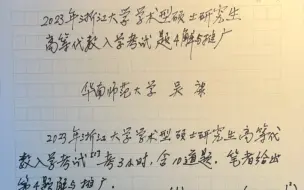 2023年浙江大学学术型硕士研究生
高等代数入学考试题4解与推广
华南师范大学 吴
2023年浙江大学学术型硕士研究生高等代
数入学考试[1]考3小时,含10道题.笔者给出
第4题解与推广.